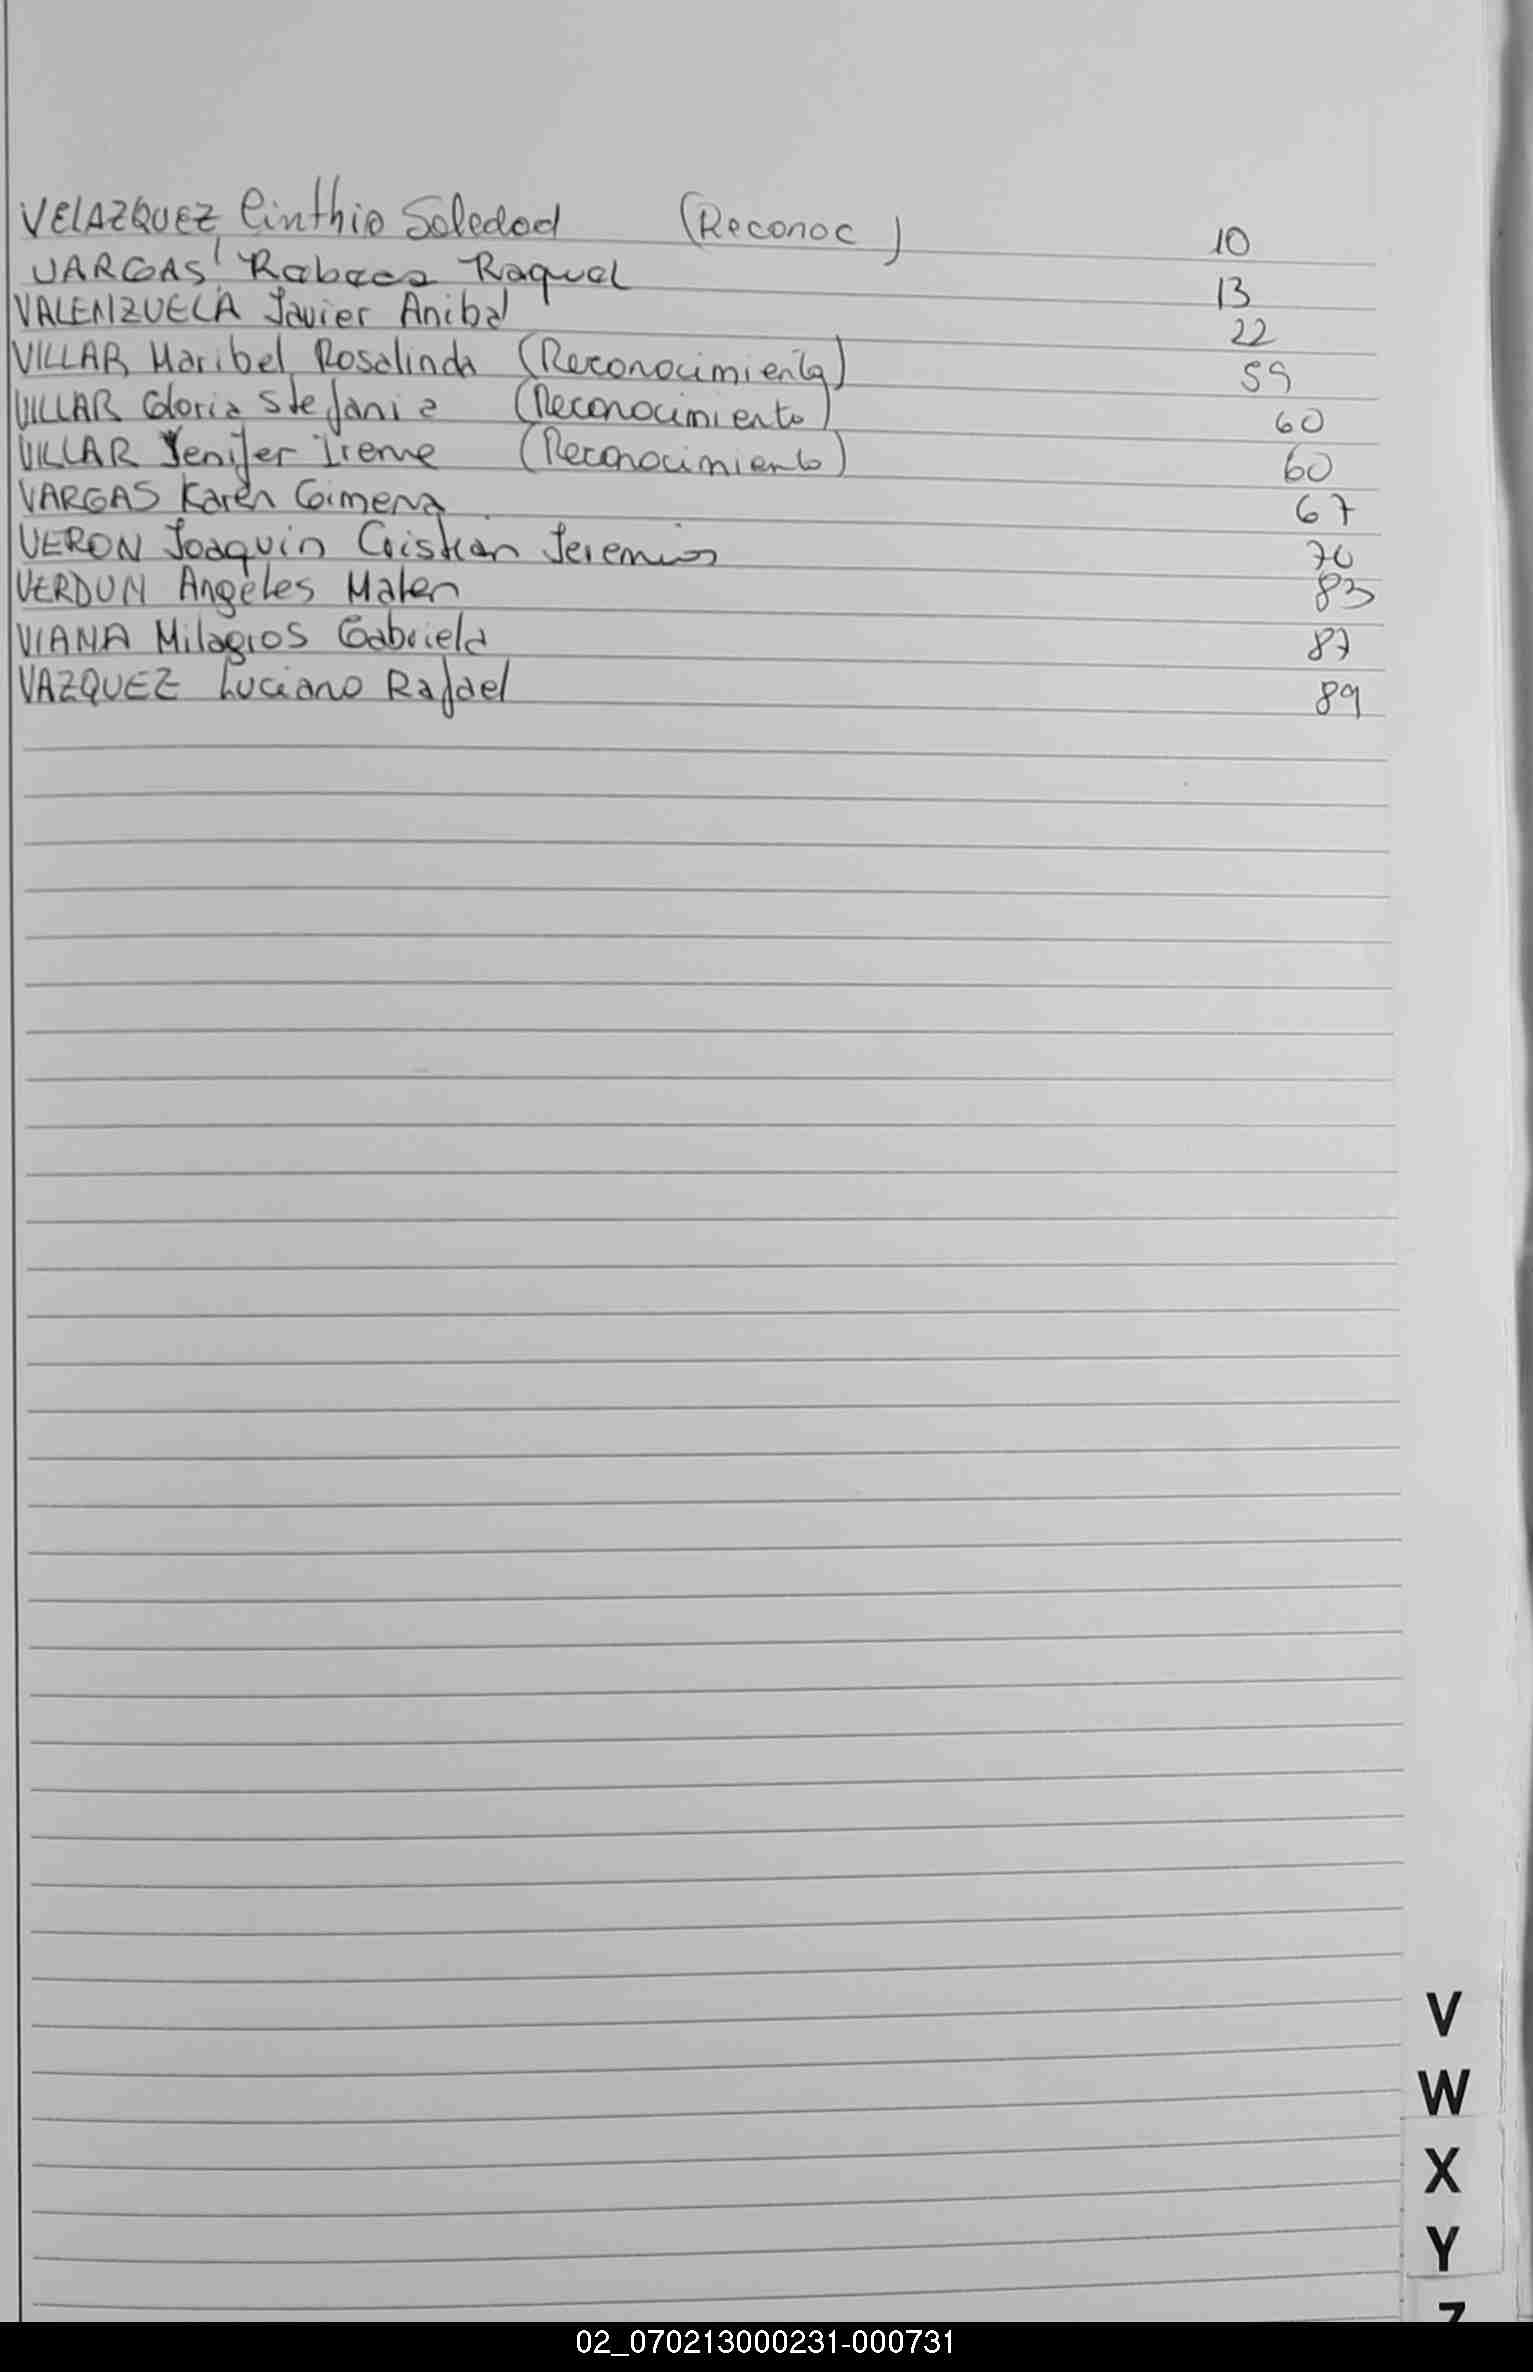 VELAZQUEZ, Cinthia Soledad (Reconoc) 10
VARGAS, Rebeca Raquel 13
VALENZUELA Javier Anibal 22
VILLAR Maribel Rosalinda (Reconocimiento) 59
VILLAR Gloria Stefania (Reconocimiento) 60
VILLAR Yenifer Irene (Reconocimiento) 60
VARGAS Karen Gimena 67
VERON Joaquin Cristian Jeremias
VERDUN Angeles Malen 83
VIANA Milagros Gabriela 87
VAZQUEZ Luciano Rafael 89
V
W
X
Y
Z
02_070213000231-000731